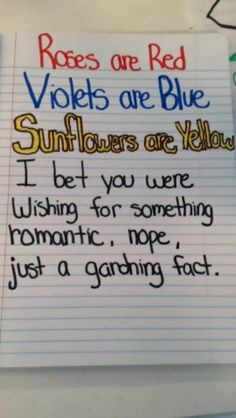 Roses are Red
Violets are Blue
Sunflowers are Yellow
I bet you were
Wishing for something
romantic, nope,
just a gardning fact.